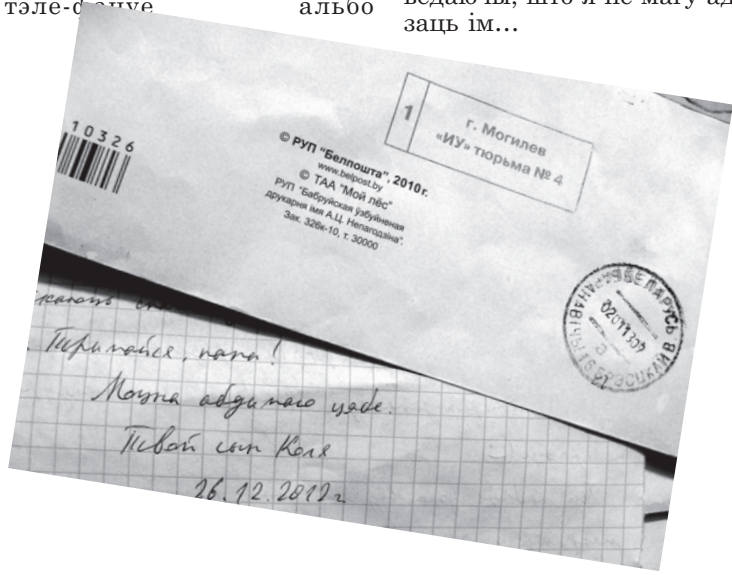 тэле-фануе альбо
заць ім...
10326
© РУП "Белпошта", 2010 г.
www.belpost.by
© ТАА "Мой лёс"
РУП "Бабруйская ўзбуйненая
друкарня імя А.Ц. Непагодзіна".
Зак. 326к-10, т. 30000
1
г. Могилев
«ИУ» тюрьма № 4
БЕЛАРУСЬ
Трымайся, папа!
Моцна абдымаю цябе.
Твой сын Коля
26.12.2012 г.